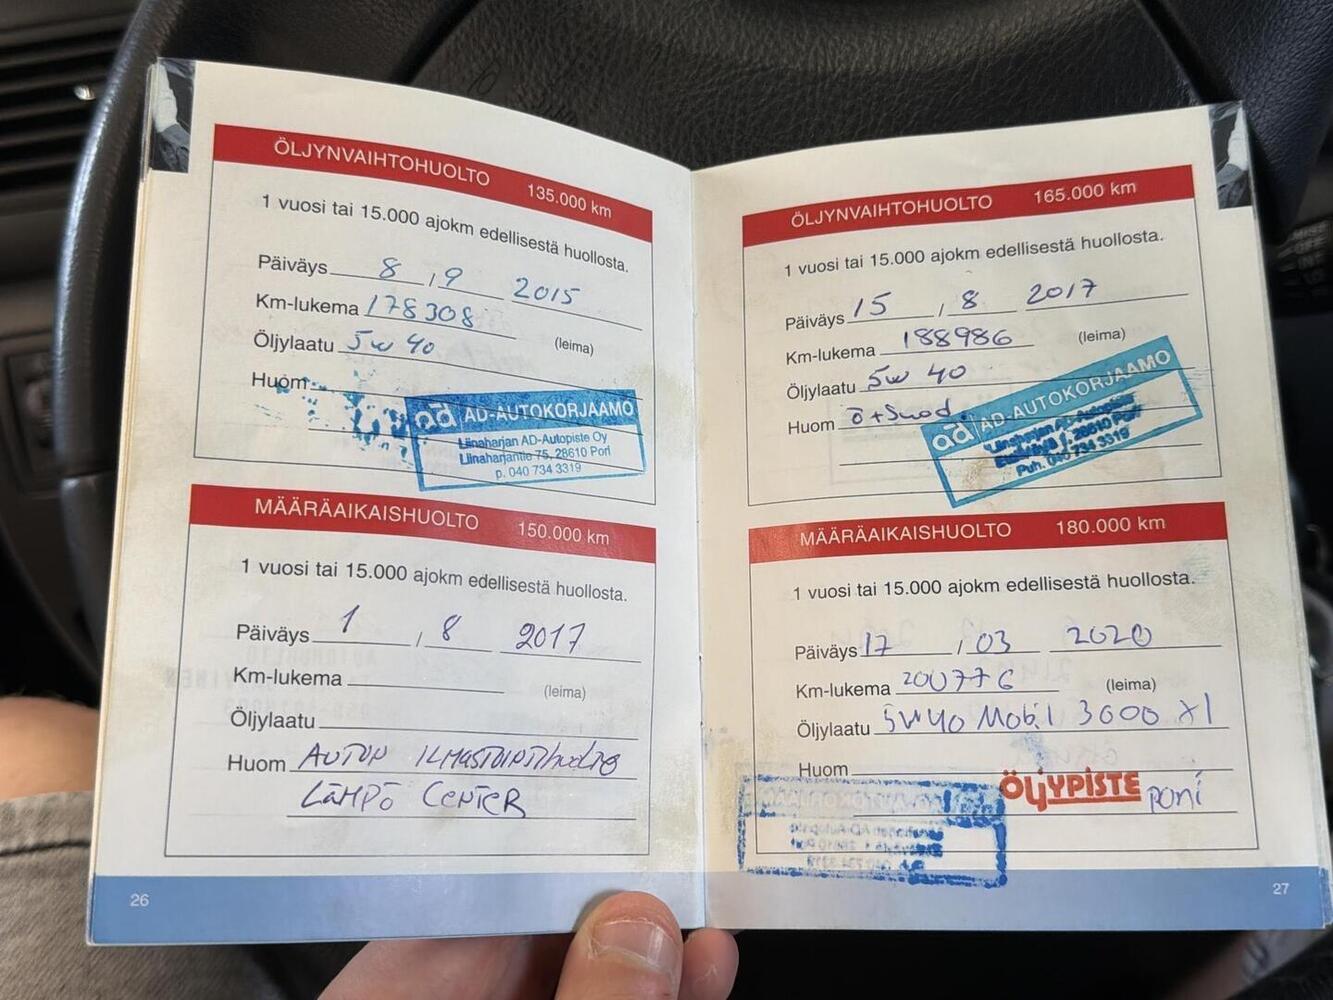 ÖLJYNVAIHTOHUOLTO 135.000 km
1 vuosi tai 15.000 ajokm edellisestä huollosta.
Päiväys 8 , 9 2015
Km-lukema 178308
Öljylaatu 5w 40 (leima)
Huom
ad AD-AUTOKORJAAMO
Liinaharjan AD-Autopiste Oy
Liinaharjantie 75, 28610 Pori
p. 040 734 3319
MÄÄRÄAIKAISHUOLTO 150.000 km
1 vuosi tai 15.000 ajokm edellisestä huollosta.
Päiväys 1 , 8 2017
Km-lukema (leima)
Öljylaatu
Huom AUTON ILMASTOINTIhuolto
LÄMPÖ CENTER
26
ÖLJYNVAIHTOHUOLTO 165.000 km
1 vuosi tai 15.000 ajokm edellisestä huollosta.
Päiväys 15 , 8 2017
Km-lukema 188986 (leima)
Öljylaatu 5w 40
Huom ö+Suod.
ad AD-AUTOKORJAAMO
Liinaharjan AD-Autopiste
28610 Pori
Puh. 040 734 3319
MÄÄRÄAIKAISHUOLTO 180.000 km
1 vuosi tai 15.000 ajokm edellisestä huollosta.
Päiväys 17 , 03 2020
Km-lukema 200776 (leima)
Öljylaatu 5W40 Mobil 3000 X1
Huom
ÖljYPISTE PORI
27